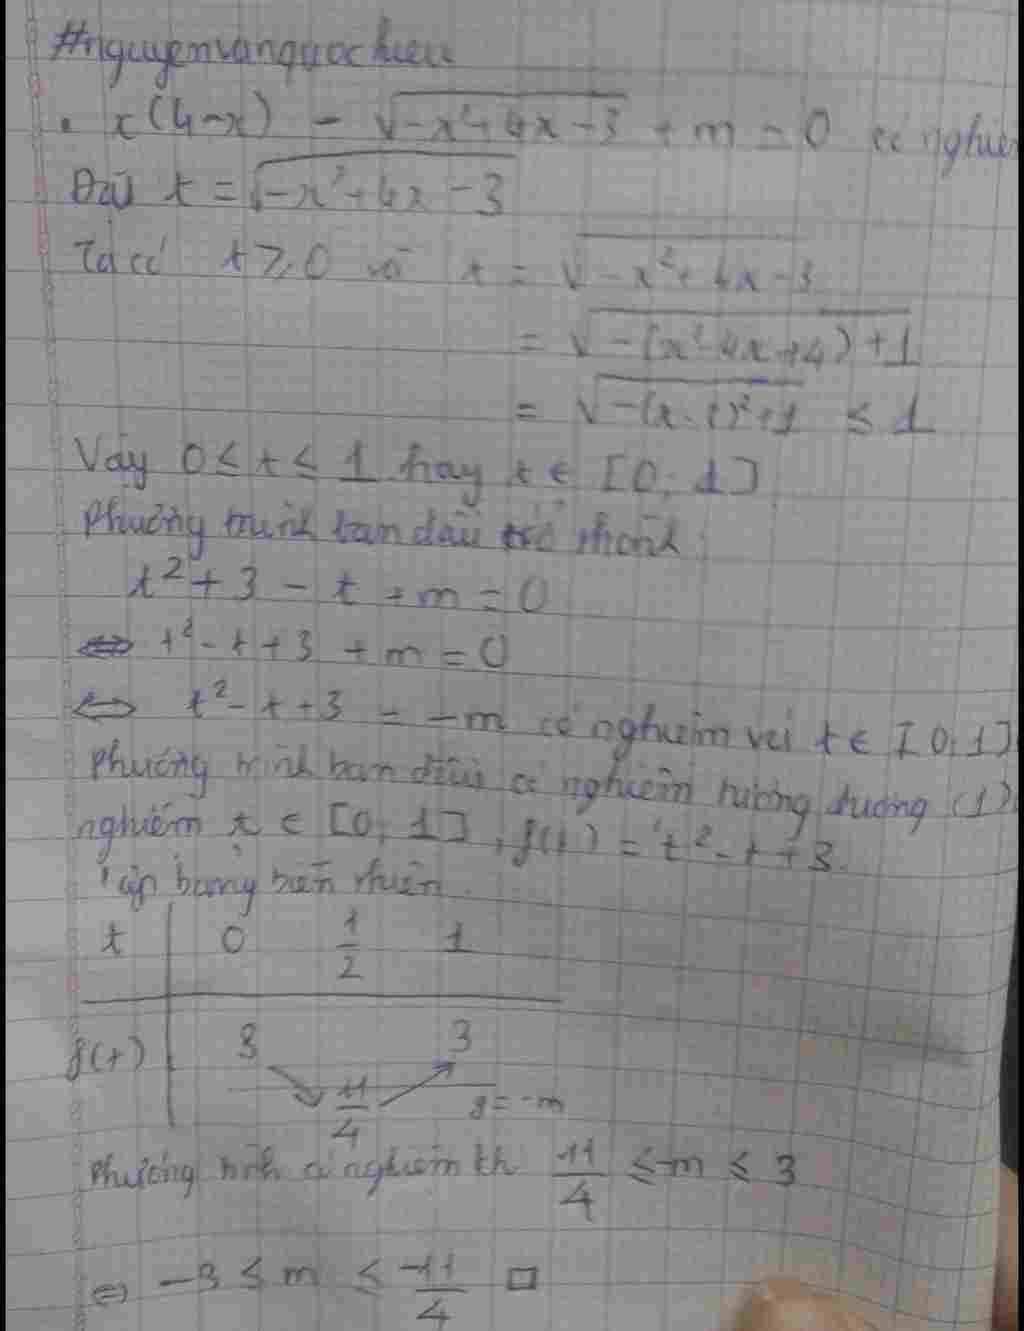 #nguyenvanquochieu
• x(4-x) - √(-x²+4x-3) + m = 0 có nghiệ
Đặt t = √(-x²+4x-3)
Ta có t ≥ 0 và t = √(-x²+4x-3)
= √(-(x²-4x+4)+1)
= √(-(x-2)²+1) ≤ 1
Vậy 0 ≤ t ≤ 1 hay t ∈ [0; 1]
Phương trình ban đầu trở thành:
t² + 3 - t + m = 0
⇔ t² - t + 3 + m = 0
⇔ t² - t + 3 = -m có nghiệm với t ∈ [0;1]
Phương trình ban đầu có nghiệm tương đương (1)
nghiệm t ∈ [0; 1], f(t) = t² - t + 3.
Lập bảng biến thiên
t | 0 1/2 1
f(t) | 3 ↘ 11/4 ↗ 3 y = -m
Phương trình có nghiệm th 11/4 ≤ -m ≤ 3
⇔ -3 ≤ m ≤ -11/4 □